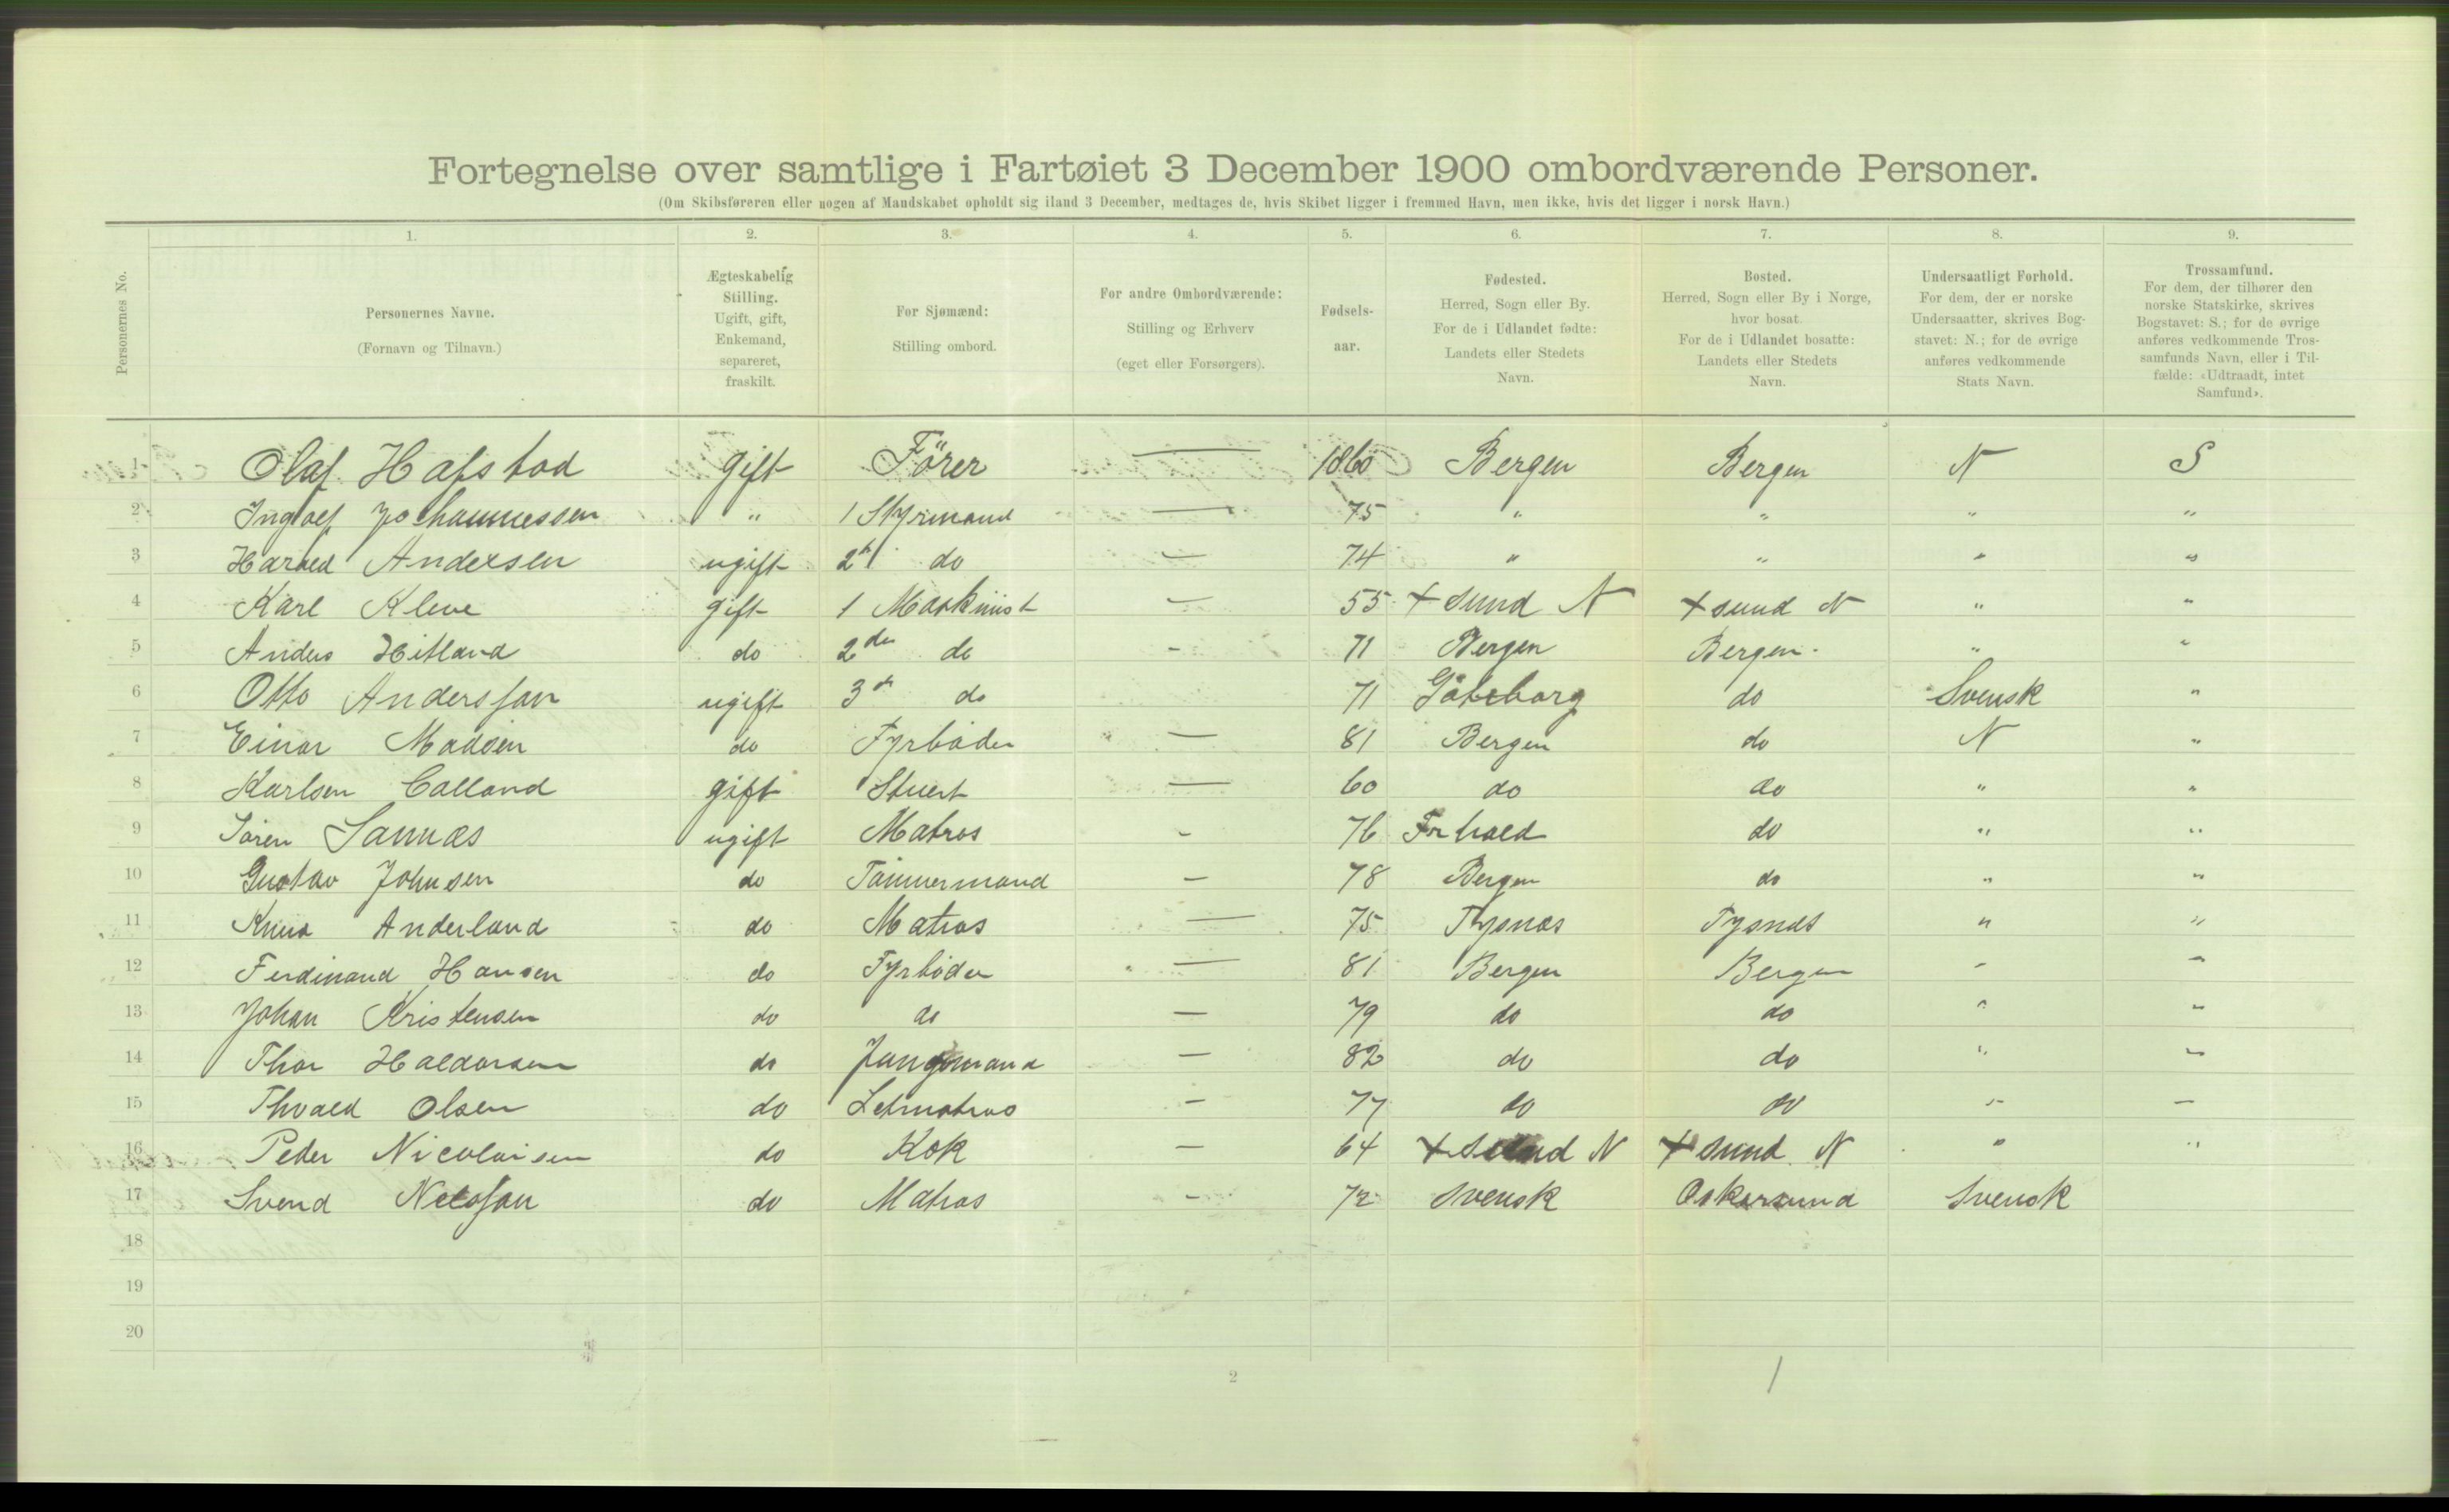 Fortegnelse over samtlige i Fartøiet 3 December 1900 ombordværende Personer.
(Om Skibsføreren eller nogen af Mandskabet opholdt sig iland 3 December, medtages de, hvis Skibet ligger i fremmed Havn, men ikke, hvis det ligger i norsk Havn.)
1. 2. 3. 4. 5. 6. 7. 8. 9.
Personernes No.
Personernes Navne.
(Fornavn og Tilnavn.)
Ægteskabelig
Stilling.
Ugift, gift,
Enkemand,
separeret,
fraskilt.
For Sjømænd:
Stilling ombord.
For andre Ombordværende:
Stilling og Erhverv
(eget eller Forsørgers).
Fødsels-
aar.
Fødested.
Herred, Sogn eller By.
For de i Udlandet fødte:
Landets eller Stedets
Navn.
Bosted.
Herred, Sogn eller By i Norge,
hvor bosat.
For de i Udlandet bosatte:
Landets eller Stedets
Navn.
Undersaatligt Forhold.
For dem, der er norske
Undersaatter, skrives Bog-
stavet: N.; for de øvrige
anføres vedkommende
Stats Navn.
Trossamfund.
For dem, der tilhører den
norske Statskirke, skrives
Bogstavet: S.; for de øvrige
anføres vedkommende Tros-
samfunds Navn, eller i Til-
fælde: «Udtraadt, intet
Samfund».
1 Olaf Hafstad gift Förer — 1860 Bergen Bergen N S
2 Ingolf Johannessen " 1 Styrmand — 75 " " " "
3 Harald Andersen ugift 2 do — 74 " " " "
4 Karl Kleve gift 1 Maskinist — 55 + sund N + sund N " "
5 Anders Hitland do 2den do - 71 Bergen Bergen. " "
6 Otto Andersson ugift 3 do 71 Göteborg do Svensk "
7 Einar Madsen do Fyrböder — 81 Bergen do N "
8 Karlsen Calland gift Stuert — 60 do do " "
9 Sören ugift Matros - 76 do " "
10 Gustav Johnsen do Tömmermand — 78 Bergen do " "
11 Knud Anderland do Matros — 75 Tysnæs Tysnæs " "
12 Ferdinand Hansen do Fyrböder — 81 Bergen Bergen " "
13 Johan Kristensen do do — 79 do do " "
14 Thor Haldorsen do Jungmand — 82 do do " "
15 Thvald Olsen do Letmatros - 77 do do " —
16 Peder Nicolaisen do Kok — 64 + sund N + sund N " "
17 Svend Nelsson do Matros - 72 Svensk Svensk
18
19
20
2